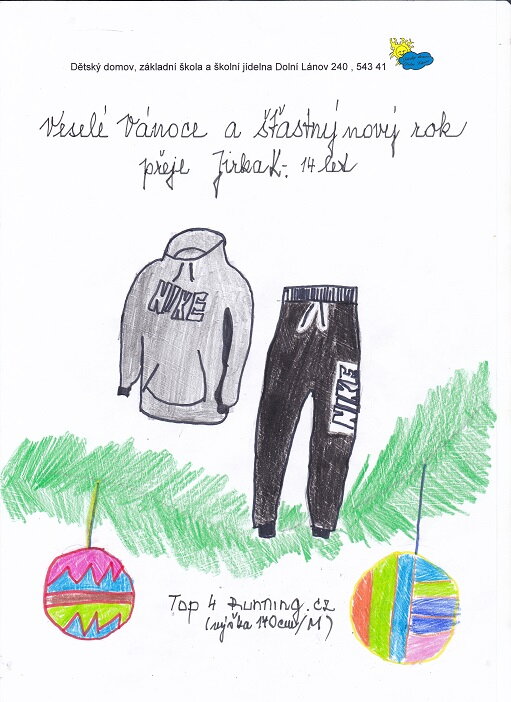 Dětský domov, základní škola a školní jídelna Dolní Lánov 240 , 543 41
Veselé Vánoce a šťastný nový rok
přeje Jirka K. 14 let
NIKE
NIKE
Top 4 Running.cz
(výška 170cm/M)